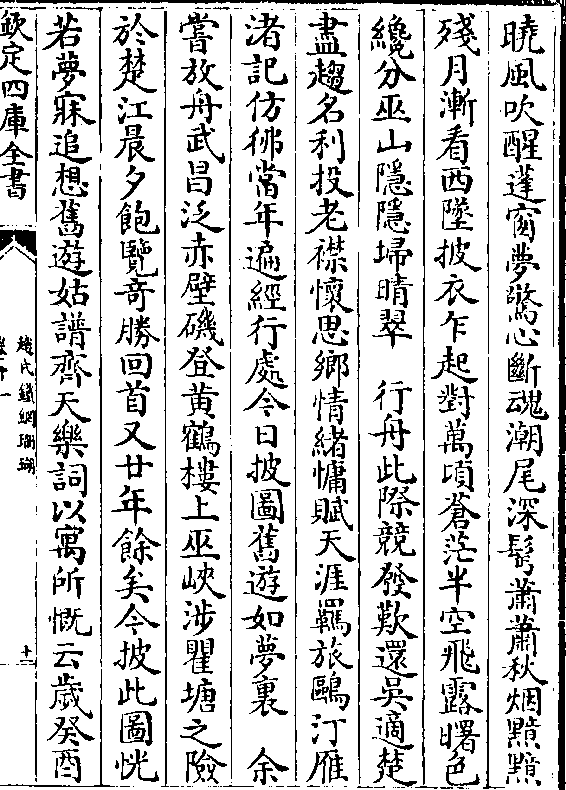 曉風吹醒蓬窗夢驚心斷魂潮尾深鬂蕭蕭秋烟㸃㸃
殘月漸看西墜披衣乍起對萬頃蒼茫半空飛露曙色
纔分巫山隱隱埽晴翠　行舟此際競發歎還吳適楚
盡趨名利投老襟懷思鄉情緒慵賦天涯羈旅鷗汀雁
渚記仿彿當年遍經行處今日披圖舊遊如夢裏　余
嘗放舟武昌泛赤壁磯登黄鶴樓上巫峽涉瞿塘之險
於楚江晨夕飽覽奇勝回首又廿年餘矣今披此圖恍
若夢寐追想舊遊姑譜齊天樂詞以寓所慨云歲癸酉
欽定四庫全書
趙氏鐵網珊瑚
卷十一
十二